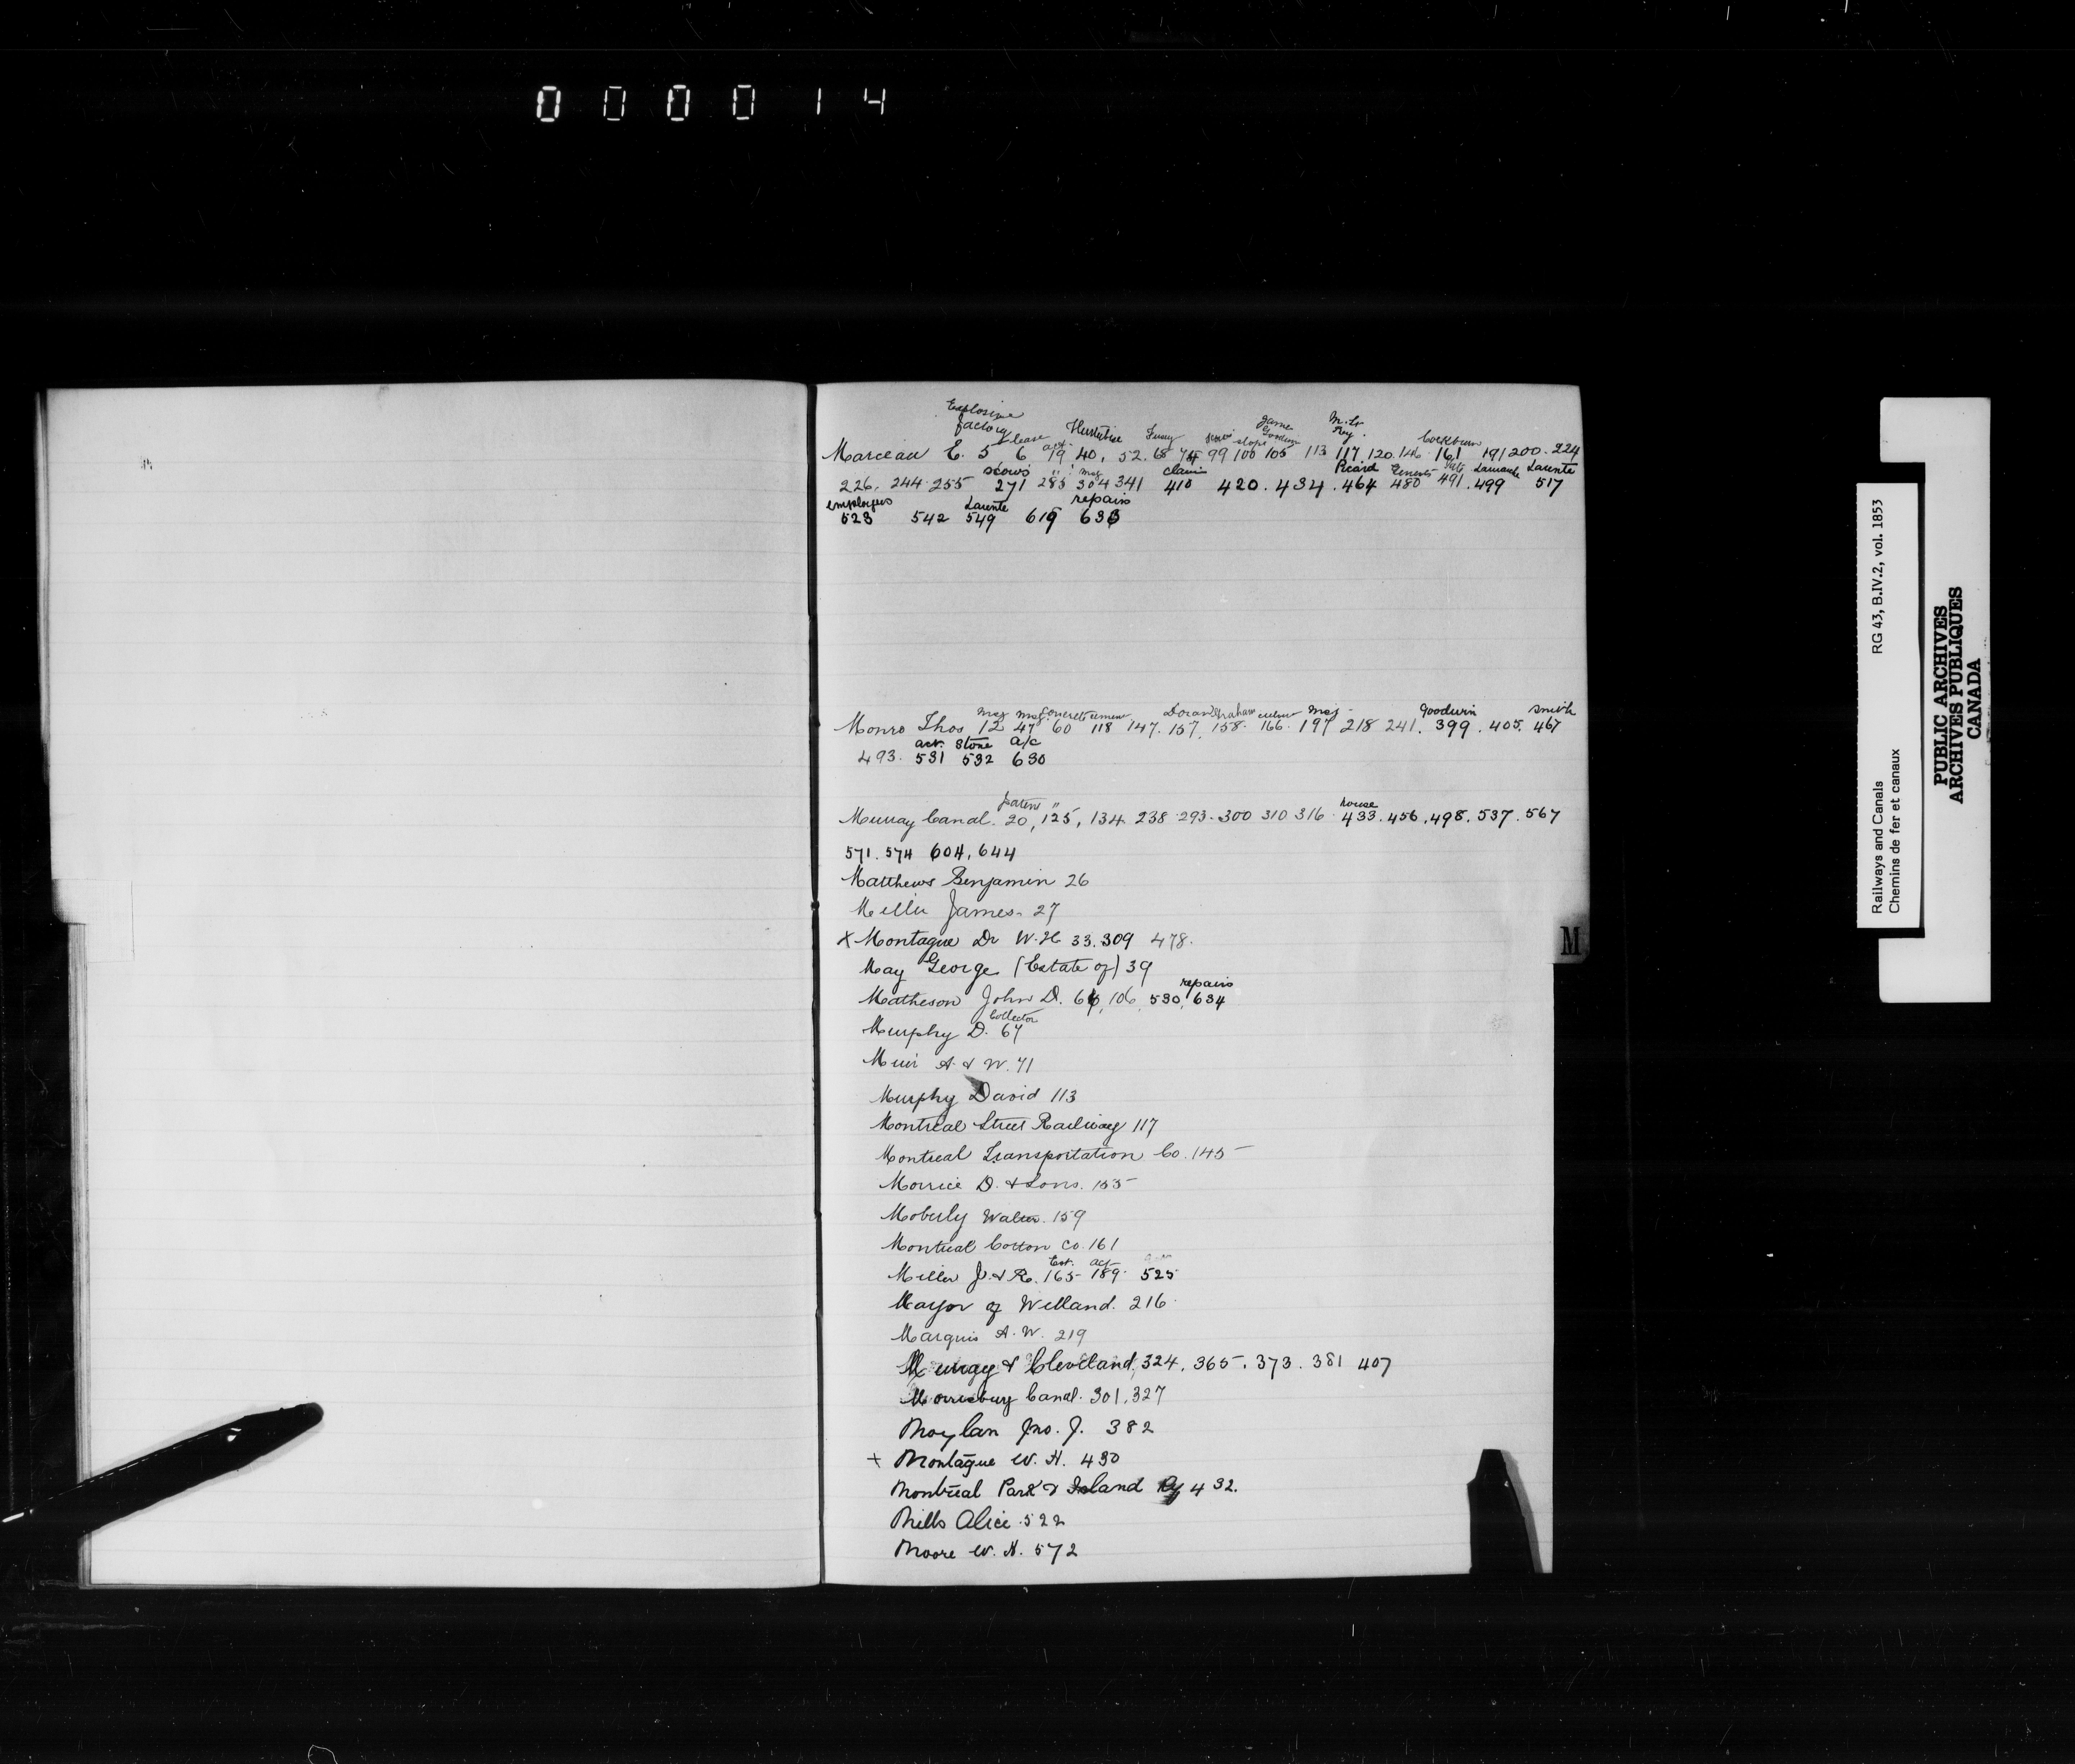 000014
Explosive
factory lease Huntertise Fuary scows slope James Goodwin M. St. Ry. Cockburn
Marceau E. 5 6 19 40, 52. 68 74 99 100 105 113 117. 120. 146 161 191 200. 224
scows " mag claim Picard Lamarche Lalonte
226. 244 255 271 285 304 341 410 420. 434. 464 480 491. 499 517
employees Lalonte repairs
523 542 549 619 633
mag mag concrete cement Doran Graham mag Goodwin Smith
Monro Thos 12 47 60 118 147. 157. 158. 166. 197 218 241. 399. 405. 467
act. Stone a/c
493. 531 532 630
" house
Murray Canal. 20, 125, 134 238 293. 300 310 316 433. 456. 498. 537. 567
571. 574 604, 644
Matthews Benjamin 26
Miller James. 27
X Montague Dr W. H 33. 309 478.
May George (Estate of) 39
repairs
Matheson John D. 66, 106, 530, 634
Collector
Murphy D. 67
Muir A. & W. 71
Murphy David 113
Montreal Street Railway 117
Montreal Transportation Co. 145
Morrice D. & Sons. 155
Moberly Walter. 159
Montreal Cotton Co. 161
Est. act
Miller J. & R. 165 189. 525
Mayor of Welland. 216
Marquis A. W. 219
Murray & Cleveland, 324. 365. 373. 381 407
Morrisburg Canal. 301. 327
Moylan Jno. J. 382
+ Montague W. H. 430
Montreal Park & Island Ry 432.
Mills Alice. 522
Moore W. H. 572
M
Railways and Canals RG 43, B.IV.2, vol. 1853
Chemins de fer et canaux
PUBLIC ARCHIVES
ARCHIVES PUBLIQUES
CANADA